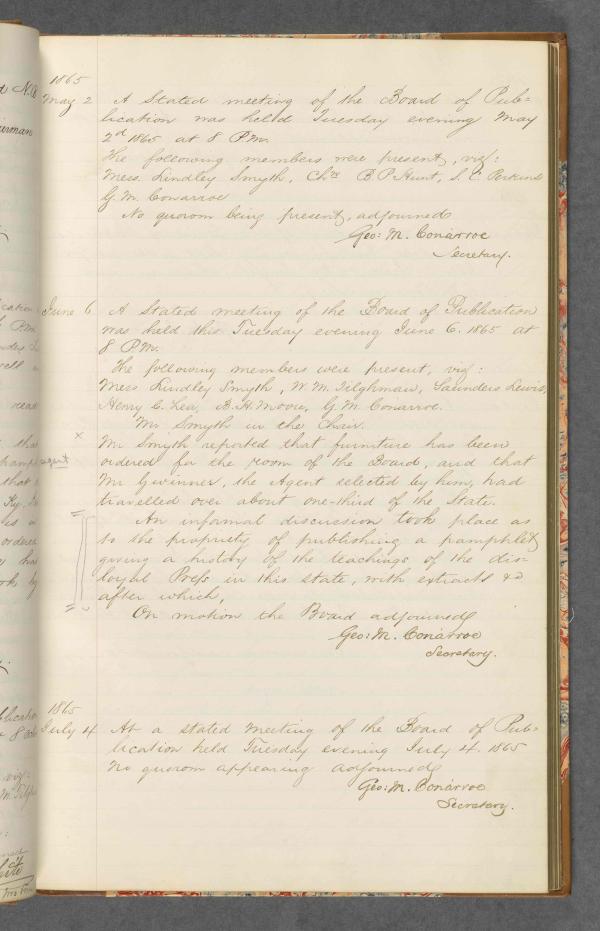 1865
May 2 A Stated meeting of the Board of Pub=
lication was held Tuesday evening May
2d 1865 at 8 P.M.
The following members were present, viz:
Mess. Lindley Smyth, Chn B. P. Hunt, S. C. Perkins
G. M. Conarroe
No quorom being present, adjourned
Geo: M. Conarroe
Secretary.
June 6. A Stated meeting of the Board of Publication
was held this Tuesday evening June 6. 1865 at
8 P.M.
The following members were present, viz:
Mess Lindley Smyth, W. M. Tilghman, Saunders Lewis,
Henry C. Lea, B. H. Moore, G. M. Conarroe.
Mr Smyth in the Chair.
x
Mr Smyth reported that furniture has been
agent
ordered for the room of the Board, and that
Mr Gwinner, the Agent selected by him, had
travelled over about one-third of the State.
An informal discussion took place as
to the propriety of publishing a pamphlet
giving a history of the teachings of the dis-
loyal Press in this state, with extracts &c
after which,
On motion the Board adjourned
Geo: M. Conarroe
Secretary.
1865
July 4 At a stated meeting of the Board of Pub-
lication held Tuesday evening July 4. 1865
No quorom appearing adjourned
Geo: M. Conarroe
Secretary.